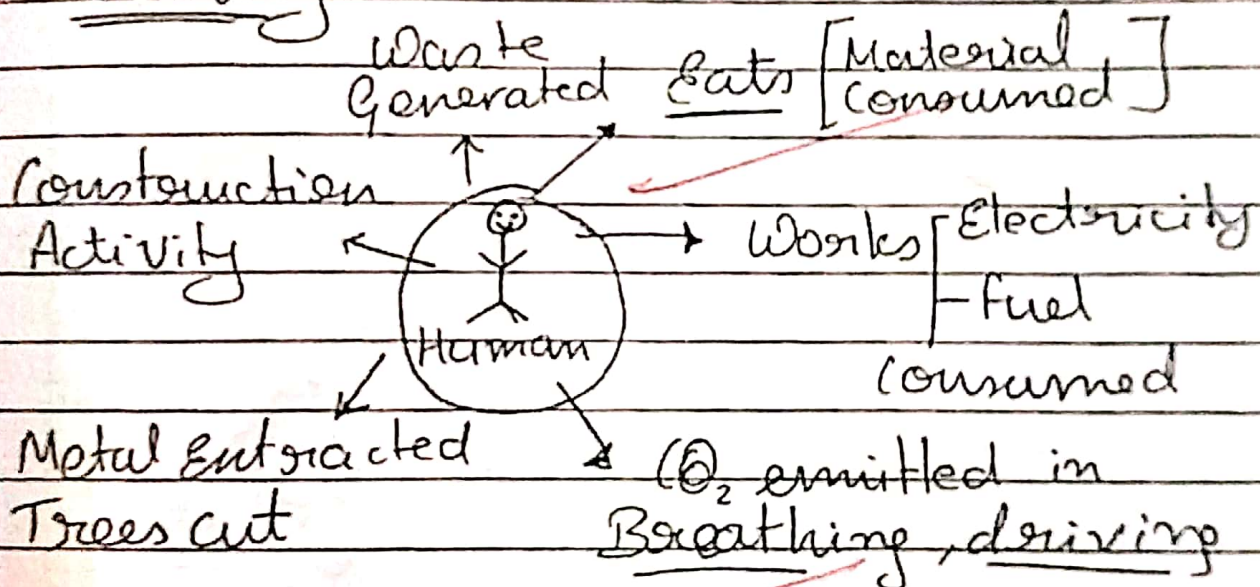 Waste
Generated
Eats [Material Consumed]
Construction
Activity
Works [Electricity
- Fuel
Consumed
Human
Metal Extracted
Trees cut
CO₂ emitted in
Breathing, driving